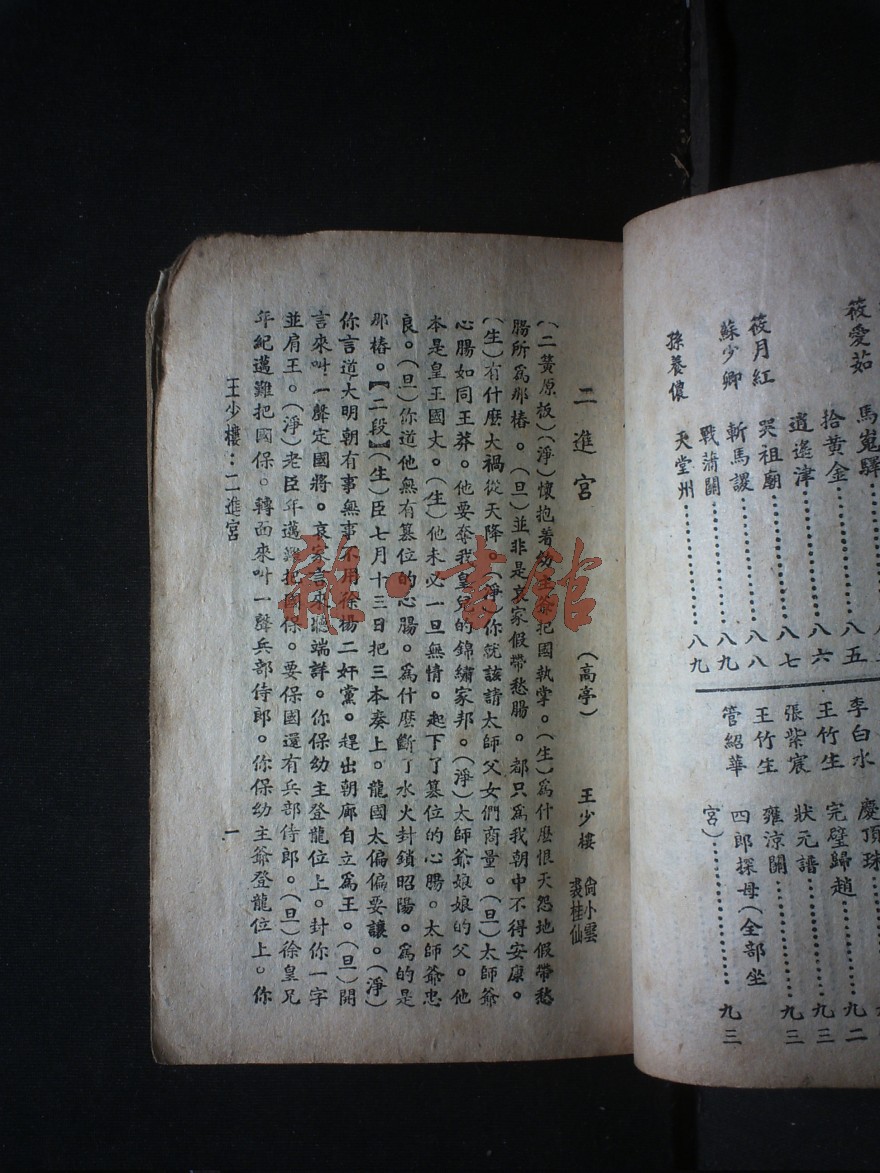 馬嵬驛
筱愛茹
拾黃金……八六
八五
逍遙津……八七
筱月紅
哭祖廟……八八
蘇少卿
斬馬謖……八九
戰蒲關……八九
孫養儂
天堂州
慶頂珠
李白水
完璧歸趙……九二
王竹生
狀元譜……九三
張紫宸
雍涼關……九三
王竹生
四郎探母（全部坐
管紹華
宮）……九三
二進宮
（高亭）
王少樓
尙小雲
裘桂仙
（二簧原板）（淨）懷抱着幼主爺把國執掌。（生）爲什麽恨天怨地假帶愁
腸所爲那樁。（旦）並非是哀家假帶愁腸。都只爲我朝中不得安康。
（生）有什麽大禍從天降。（淨）你就該請太師父女們商量。（旦）太師爺
心腸如同王莽。他要奪我皇兒的錦繡家邦。（淨）太師爺娘娘的父。他
本是皇王國丈。（生）他未必一旦無情。起下了篡位的心腸。太師爺忠
良。（旦）你道他無有篡位的心腸。爲什麽斷了水火封鎖昭陽。爲的是
那樁。【二段】（生）臣七月十三日把三本奏上。龍國太偏偏要讓。（淨）
你言道大明朝有事無事不用徐楊二奸黨。趕出朝廊自立爲王。（旦）開
言來叫一聲定國將。哀家言來聽端詳。你保幼主登龍位上。封你一字
並肩王。（淨）老臣年邁難把國保。要保國還有兵部侍郎。（旦）徐皇兄
年紀邁難把國保。轉面來叫一聲兵部侍郎。你保幼主爺登龍位上。你
王少樓：二進宮
一
龍·書館